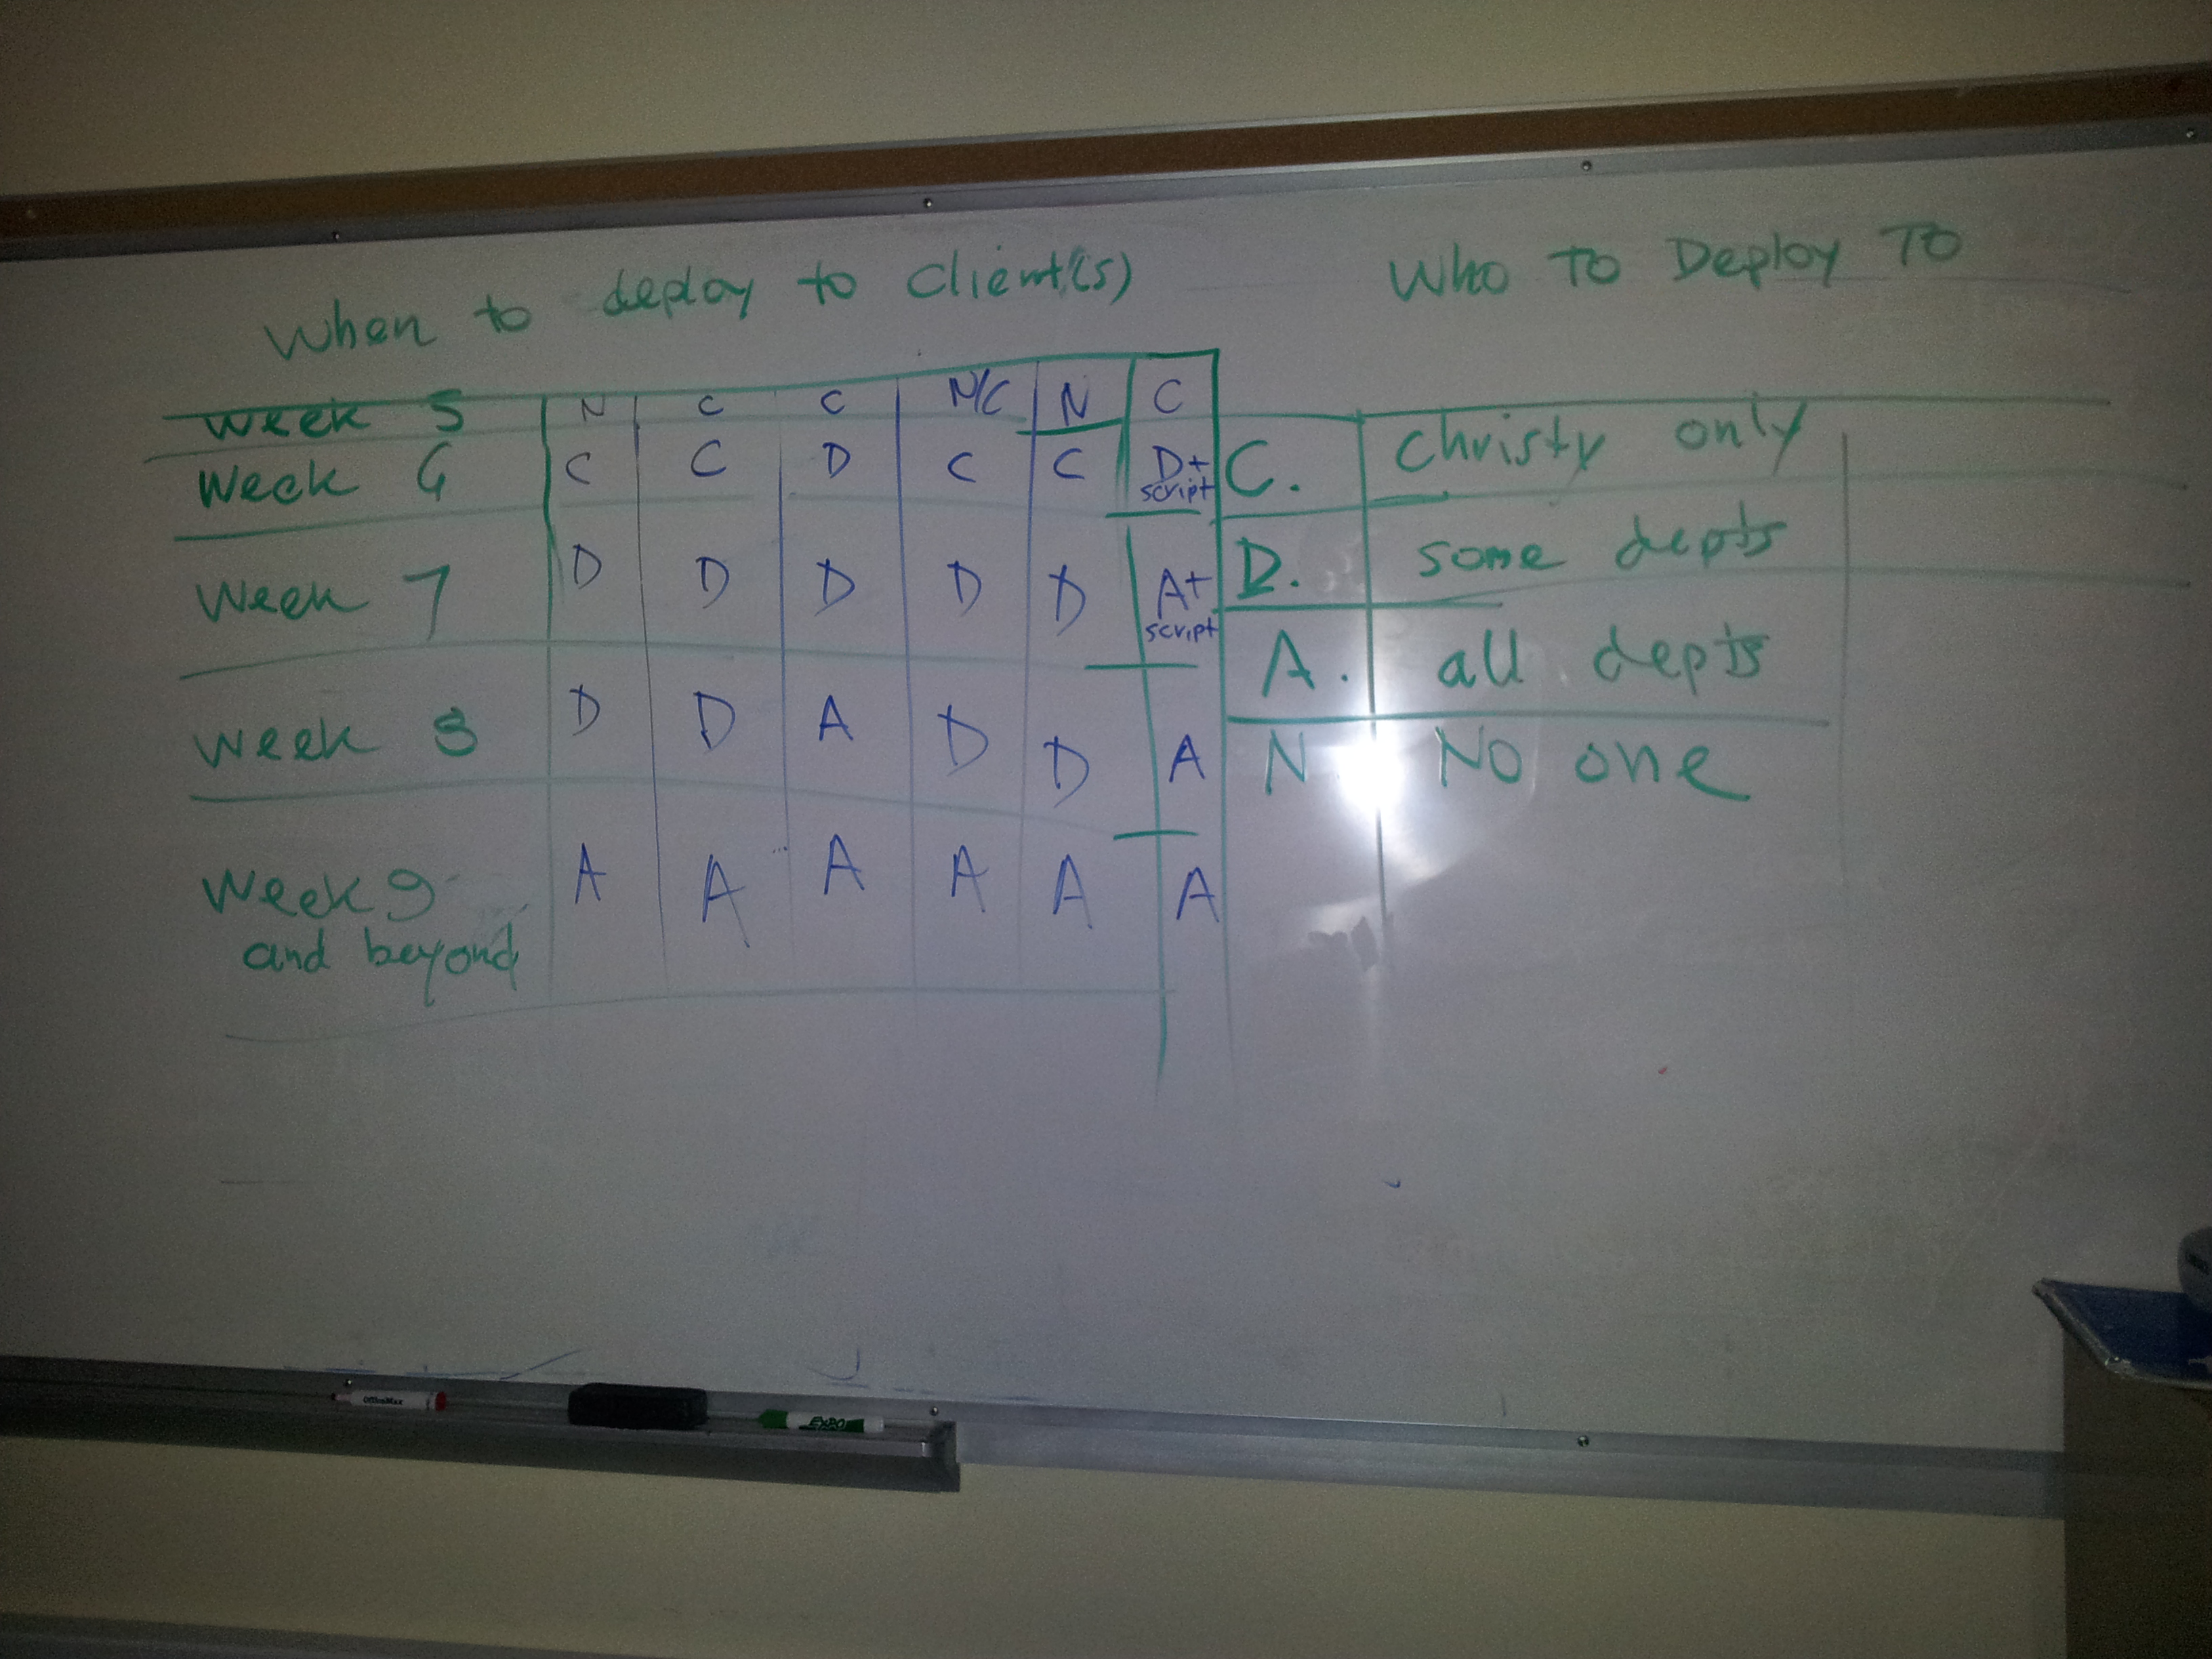 When to deploy to Client(s)
Who To Deploy To
Week 5 N C C N/C N C
Week 6 C C D C C D+ script
Week 7 D D D D D A+ script
Week 8 D D A D D A
Week 9 A A A A A A
and beyond
C. Christy only
D. some depts
A. all depts
N No one
OfficeMax
EXPO